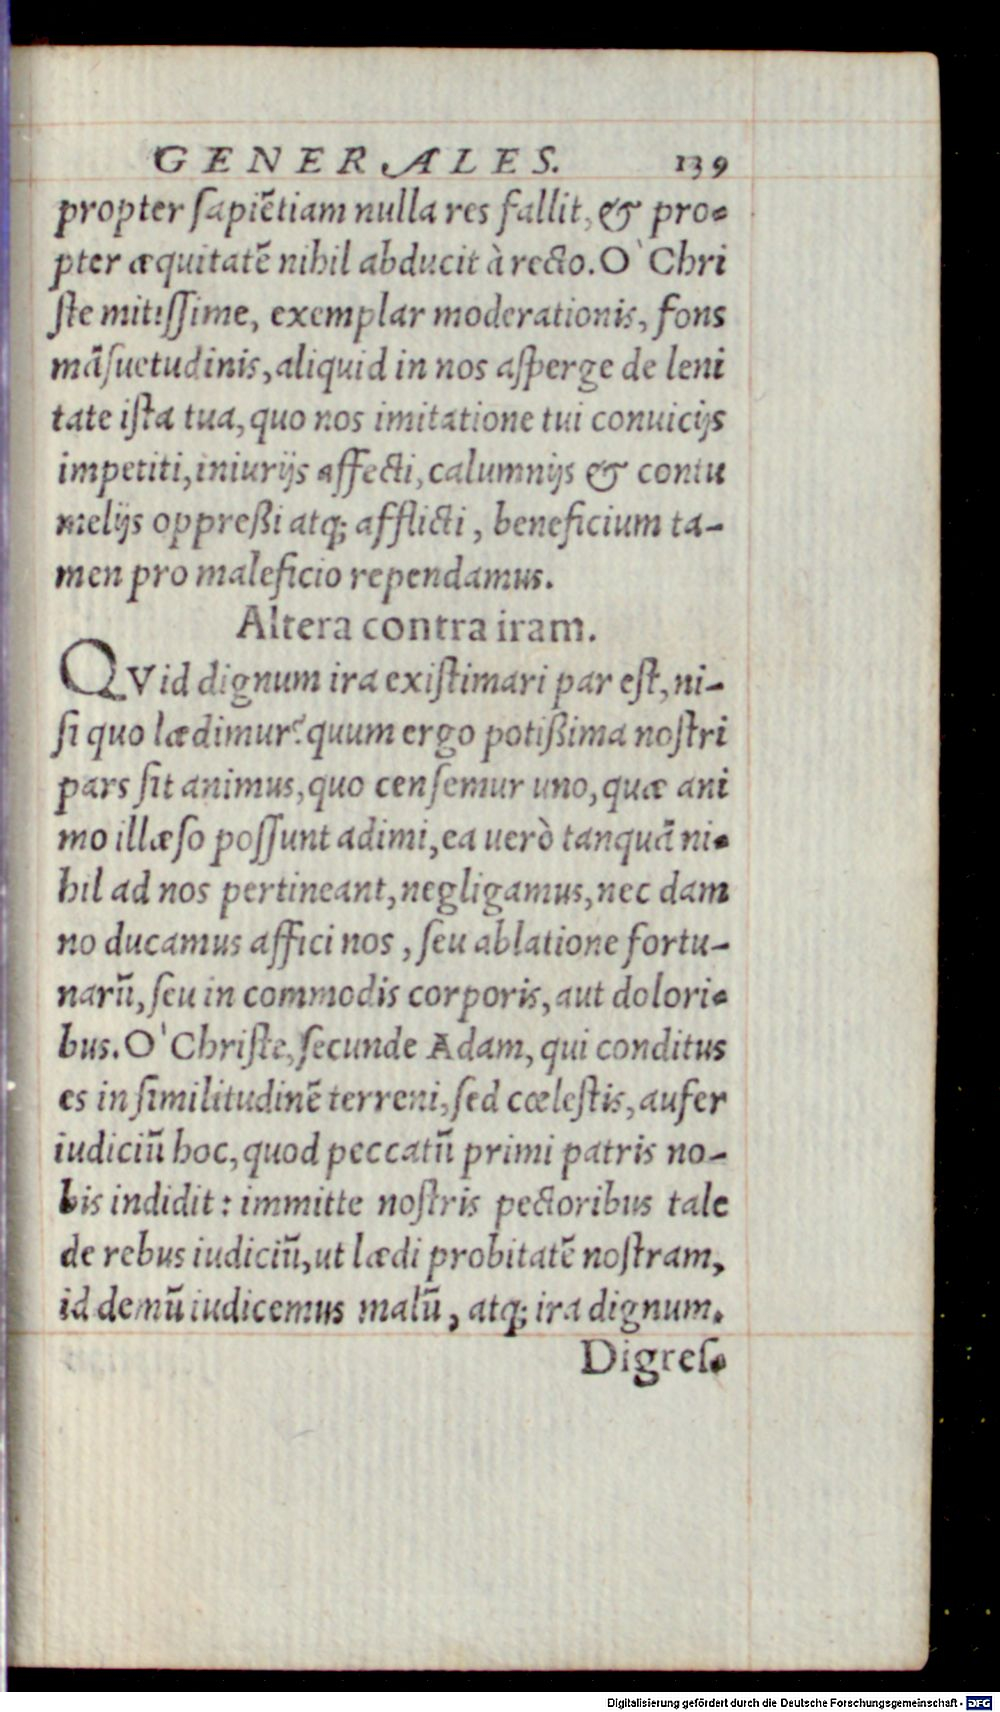 GENERALES. 139
propter ſapiẽtiam nulla res fallit, & pro-
pter æquitatẽ nihil abducit à recto. O` Chri
ſte mitiſſime, exemplar moderationis, fons
mãſuetudinis, aliquid in nos aſperge de leni
tate iſta tua, quo nos imitatione tui conuicijs
impetiti, iniurijs affecti, calumnijs & contu
melijs oppreßi atq; afflicti, beneficium ta-
men pro maleficio rependamus.
Altera contra iram.
QVid dignum ira exiſtimari par eſt, ni-
ſi quo lædimur? quum ergo potißima noſtri
pars ſit animus, quo cenſemur uno, quæ ani
mo illæſo poſſunt adimi, ea uerò tanquã ni-
hil ad nos pertineant, negligamus, nec dam
no ducamus affici nos, ſeu ablatione fortu-
narũ, ſeu in commodis corporis, aut dolori-
bus. O` Chriſte, ſecunde Adam, qui conditus
es in ſimilitudinẽ terreni, ſed cœleſtis, aufer
iudiciũ hoc, quod peccatũ primi patris no-
bis indidit: immitte noſtris pectoribus tale
de rebus iudiciũ, ut lædi probitatẽ noſtram,
id demũ iudicemus malũ, atq; ira dignum.
Digreſ-
Digitalisierung gefördert durch die Deutsche Forschungsgemeinschaft - DFG